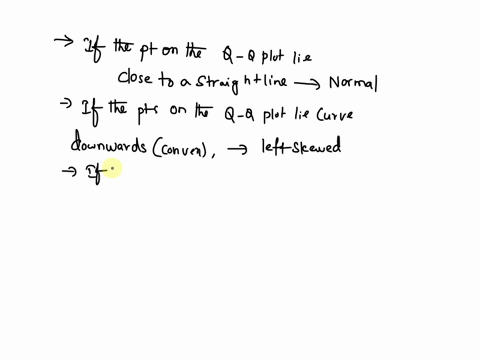 → If the pt on the Q-Q plot lie
close to a straight line → Normal
→ If the pts on the Q-Q plot lie curve
downwards (conven), → left skewed
→ If